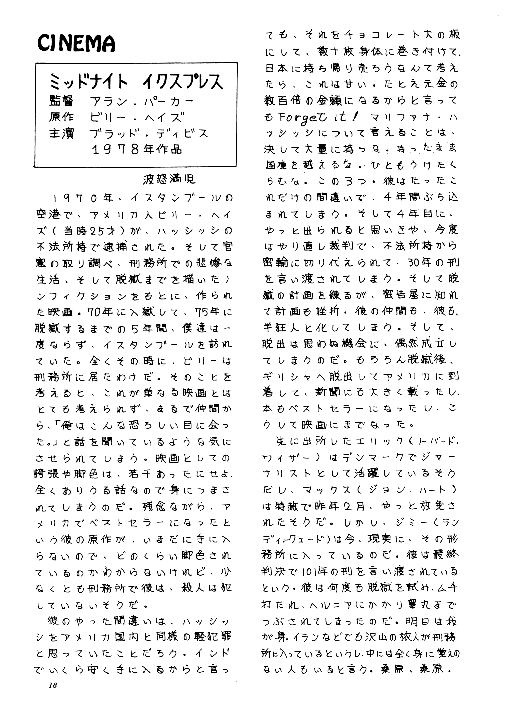 CINEMA
ミッドナイト イクスプレス
監督 アラン．パーカー
原作 ビリー．ヘイズ
主演 ブラッド．ディビス
１９７８年作品
波怒満児
１９７０年、イスタンブールの
空港で、アメリカ人ビリー．ヘイ
ズ（当時25才）が、ハッシッシの
不法所持で逮捕された。そして官
憲の取り調べ、刑務所での悲惨な
生活、そして脱獄までを描いたノ
ンフィクションをもとに、作られ
た映画。70年に入獄して、75年に
脱獄するまでの５年間、僕達は一
度ならず、イスタンブールを訪れ
ていた。全くその時に、ビリーは
刑務所に居たわけだ。そのことを
考えると、これが単なる映画とは
とても考えられず、まるで仲間か
ら、「俺はこんな恐ろしい目に会っ
た。」と話を聞いているような気に
させられてしまう。映画としての
誇張や脚色は、若干あったにせよ、
全くありうる話なので身につまさ
れてしまうのだ。残念ながら、ア
メリカでベストセラーになったと
いう彼の原作が、いまだに手に入
らないので、どのくらい脚色され
ているのかわからないけれど、少
なくとも刑務所で彼は、殺人は犯
していないそうだ。
彼のやった間違いは、ハッシッ
シをアメリカ国内と同様の軽犯罪
と思っていたことだろう。インド
でいくら安く手に入るからと言っ
ても、それをチョコレート大の板
にして、数十枚身体に巻き付けて、
日本に持ち帰り売ろうなんて考え
たら、これは甘い。たとえ元金の
数百倍の金額になるからと言って
もForget it! マリファナ・ハ
ッシッシについて言えることは、
決して大量に持つな、持ったまま
国境を越えるな、ひともうけたく
らむな。この３つ。彼はたったこ
れだけの間違いで、４年間ぶち込
まれてしまう。そして４年目に、
やっと出られると思いきや、今度
はやり直し裁判で、不法所持から
密輸に切り代えられて、30年の刑
を言い渡されてしまう。そして脱
獄の計画を練るが、密告屋に知れ
て計画も挫折。彼の仲間も、彼も、
半狂人と化してしまう。そして、
脱出は思わぬ機会に、偶然成立し
てしまうのだ。もちろん脱獄後、
ギリシャへ脱出してアメリカに到
着して、新聞にも大きく載ったし、
本もベストセラーになったし、こ
うして映画にまでなった。
先に出所したエリック（ノーバード．
ウィザー）はデンマークでジャー
ナリストとして活躍しているそう
だし、マックス（ジョン．ハート）
は特赦で昨年２月、やっと放免さ
れたそうだ。しかし、ジミー（ラン
ディ．クェード）は今、現実に、その刑
務所に入っているのだ。彼は最終
判決で101年の刑を言い渡されている
という。彼は何度も脱獄を試み、ムチ
打たれ、ヘルニアにかかり睾丸まで
つぶされてしまったのだ。明日は我
が身、イランなどでも沢山の旅人が刑務
所に入っているというし、中には全く身に覚えの
ない人もいると言う。桑原、桑原。
18